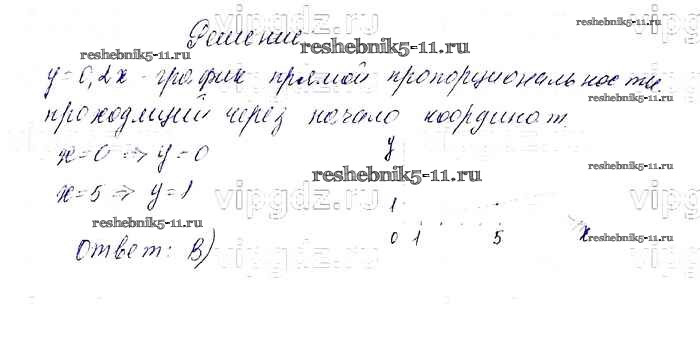 Решение
y=0,2x - график прямой пропорциональности,
проходящий через начало координат.
x=0 => y=0
x=5 => y=1
Ответ: В)
y
1
0 1 5 x
vipgdz.ru
reshebnik5-11.ru
reshebnik5-11.ru
reshebnik5-11.ru
reshebnik5-11.ru
reshebnik5-11.ru
reshebnik5-11.ru
reshebnik5-11.ru
reshebnik5-11.ru
vipgdz.ru
vipgdz.ru
vipgdz.ru